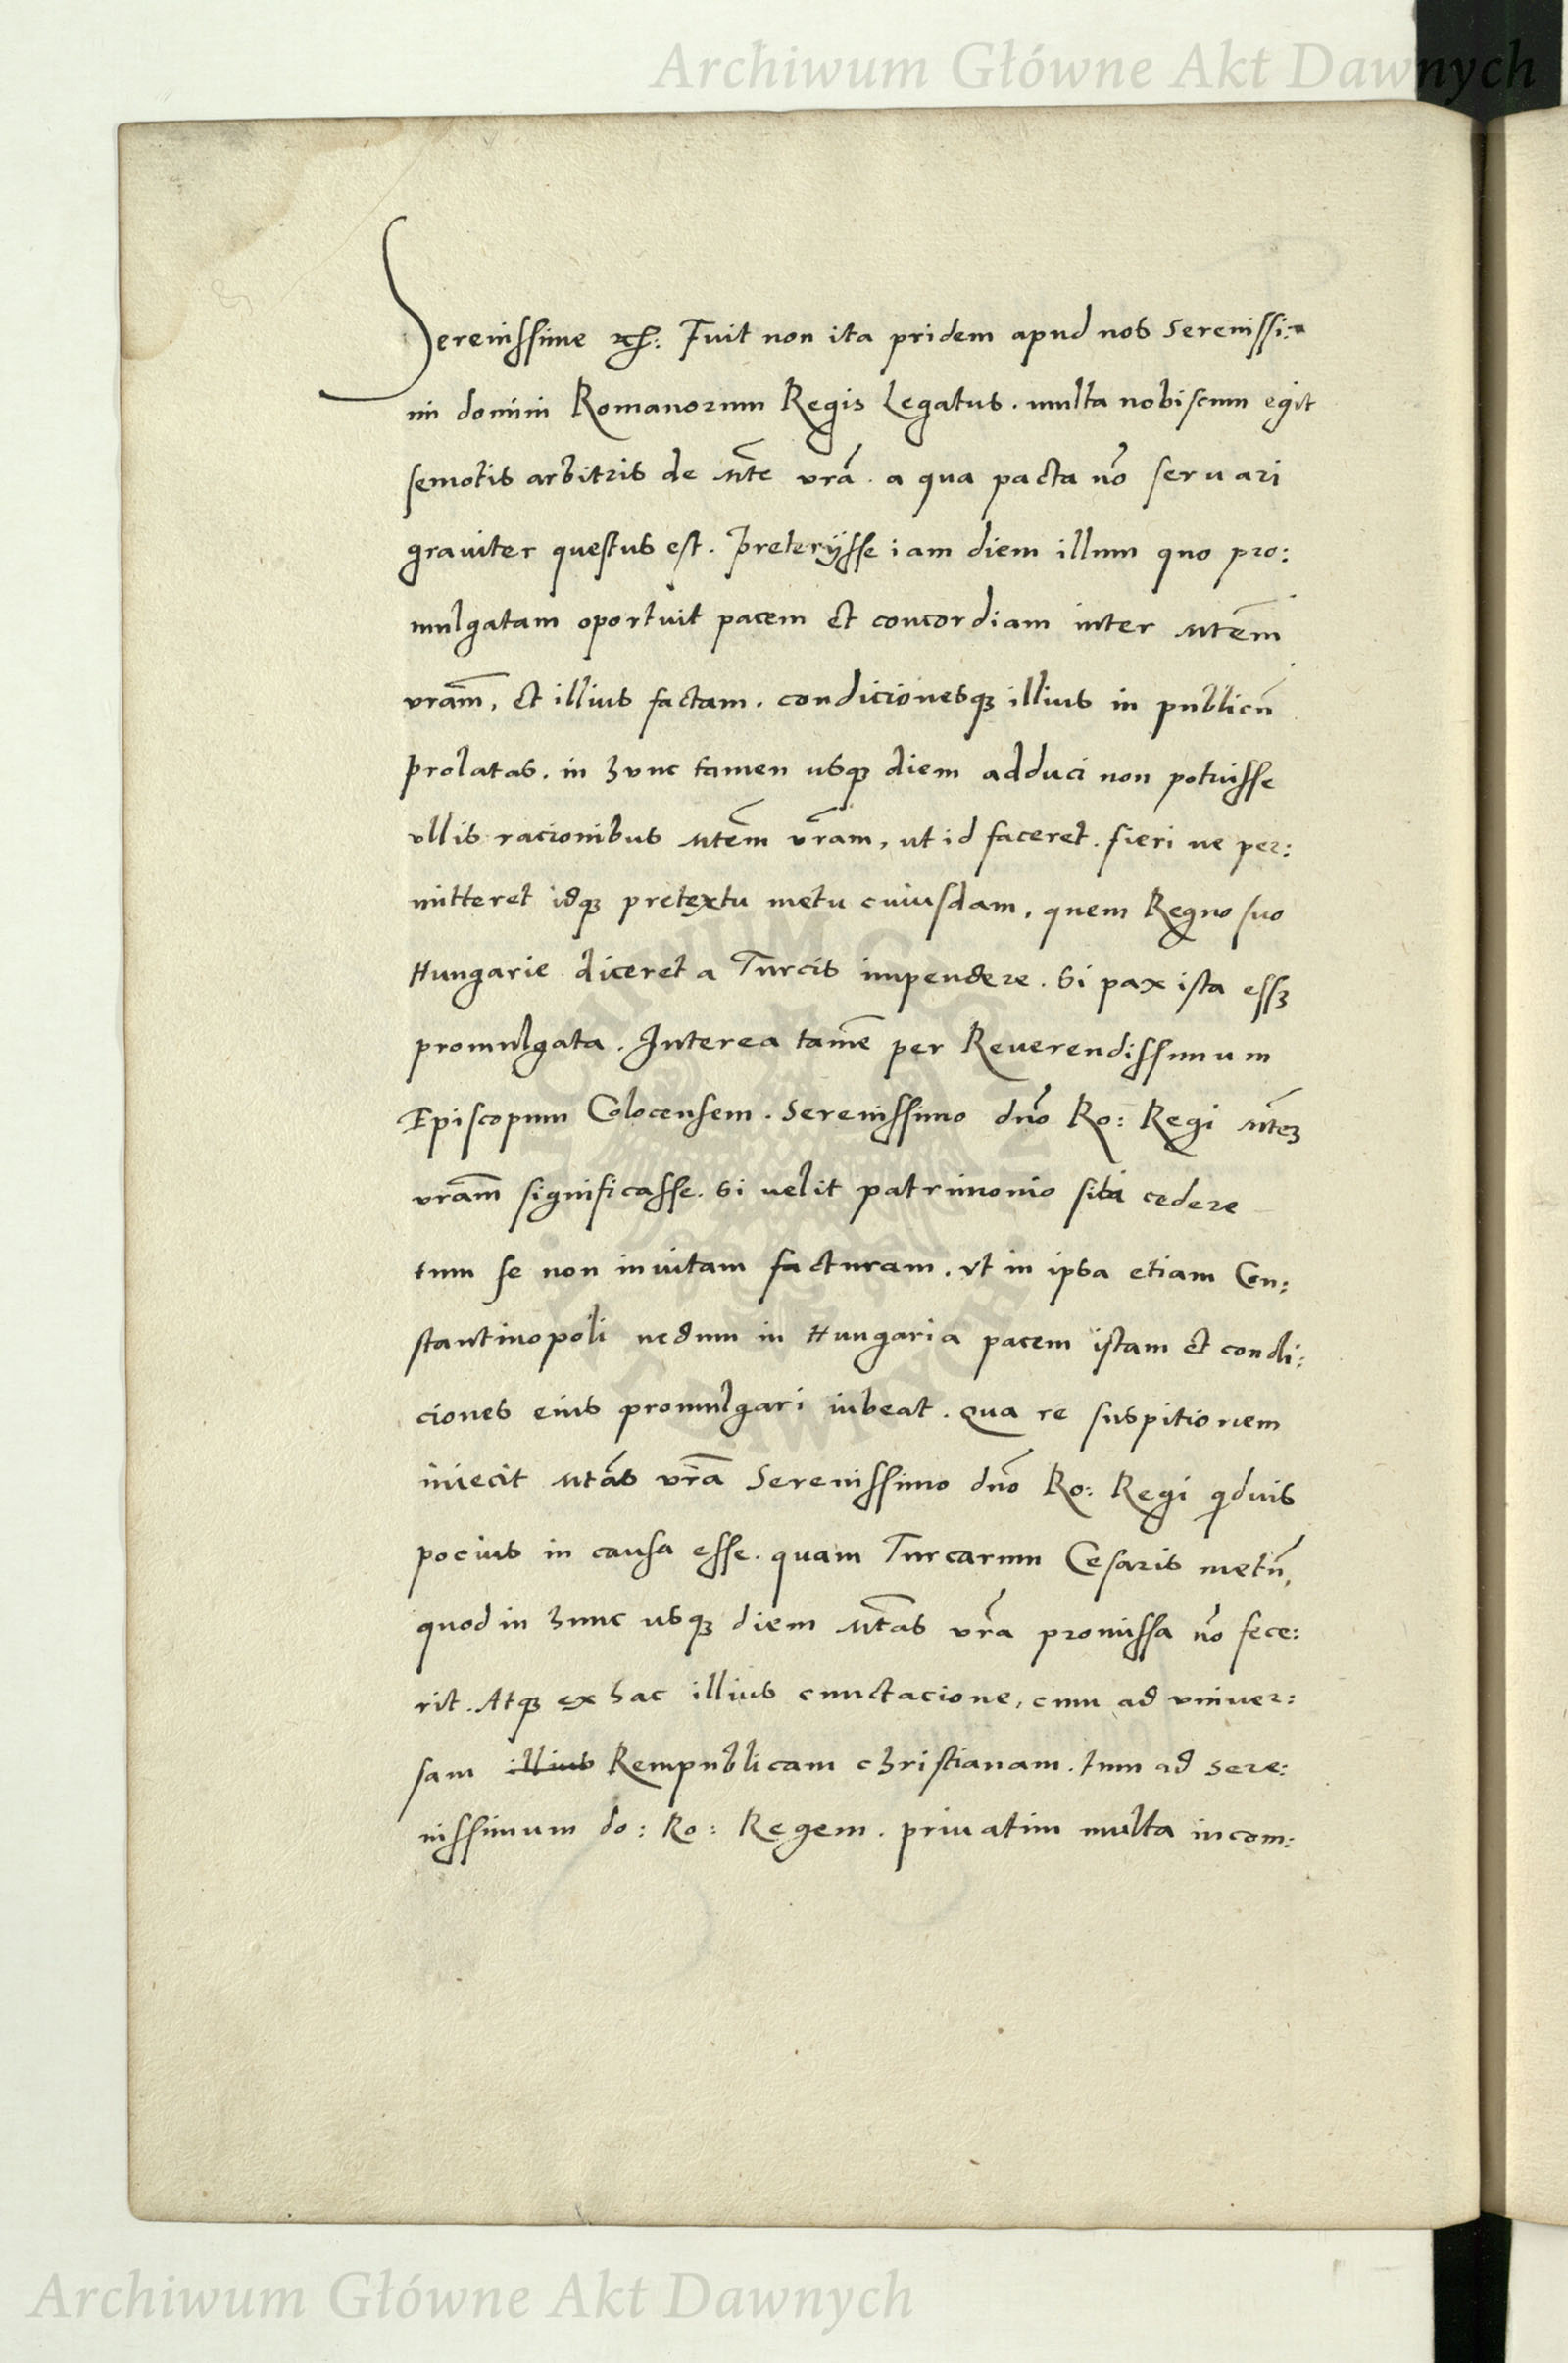 Archiwum Główne Akt Dawnych
Serenissime etc: Fuit non ita pridem apud nos Serenissi:
mi domini Romanorum Regis Legatus. multa nobiscum egit
semotis arbitris de Mte vrã. a qua pacta nõ seruari
grauiter questus est. preterijsse iam diem illum quo pro:
mulgatam oportuit pacem et concordiam inter Mtẽm
vrãm, et illius factam. condicionesq3 illius in publicũ
prolatas. in hunc tamen usq3 diem adduci non potuisse
vllis racionibus Mtẽm vr̃am, ut id faceret. fieri ne per:
mitteret idq3 pretextu metu cuiusdam, quem Regno suo
Hungarie diceret a Turcis impendere. Si pax ista ess3
promulgata. Interea tamẽ per Reuerendissimum
Episcopum Colocensem. Serenissimo dnõ Ro: Regi Mte3
vrãm significasse. Si uelit patrimonio sibi cedere
tum se non inuitam facturam. vt in ipsa etiam Con:
stantinopoli nedum in Hungaria pacem istam et condi:
ciones eius promulgari iubeat. Qua re suspitionem
iniecit Mtãs vrã Serenissimo dnõ Ro: Regi qduis
pocius in causa esse. quam Turcarum Cesaris metũ,
quod in hunc usq3 diem Mtãs vrã promissa nõ fece:
rit. Atq3 ex hac illius cunctacione, cum ad vniuer:
sam illius Rempublicam christianam. tum ad Sere:
nissimum do: Ro: Regem. priuatim multa incom:
Archiwum Główne Akt Dawnych